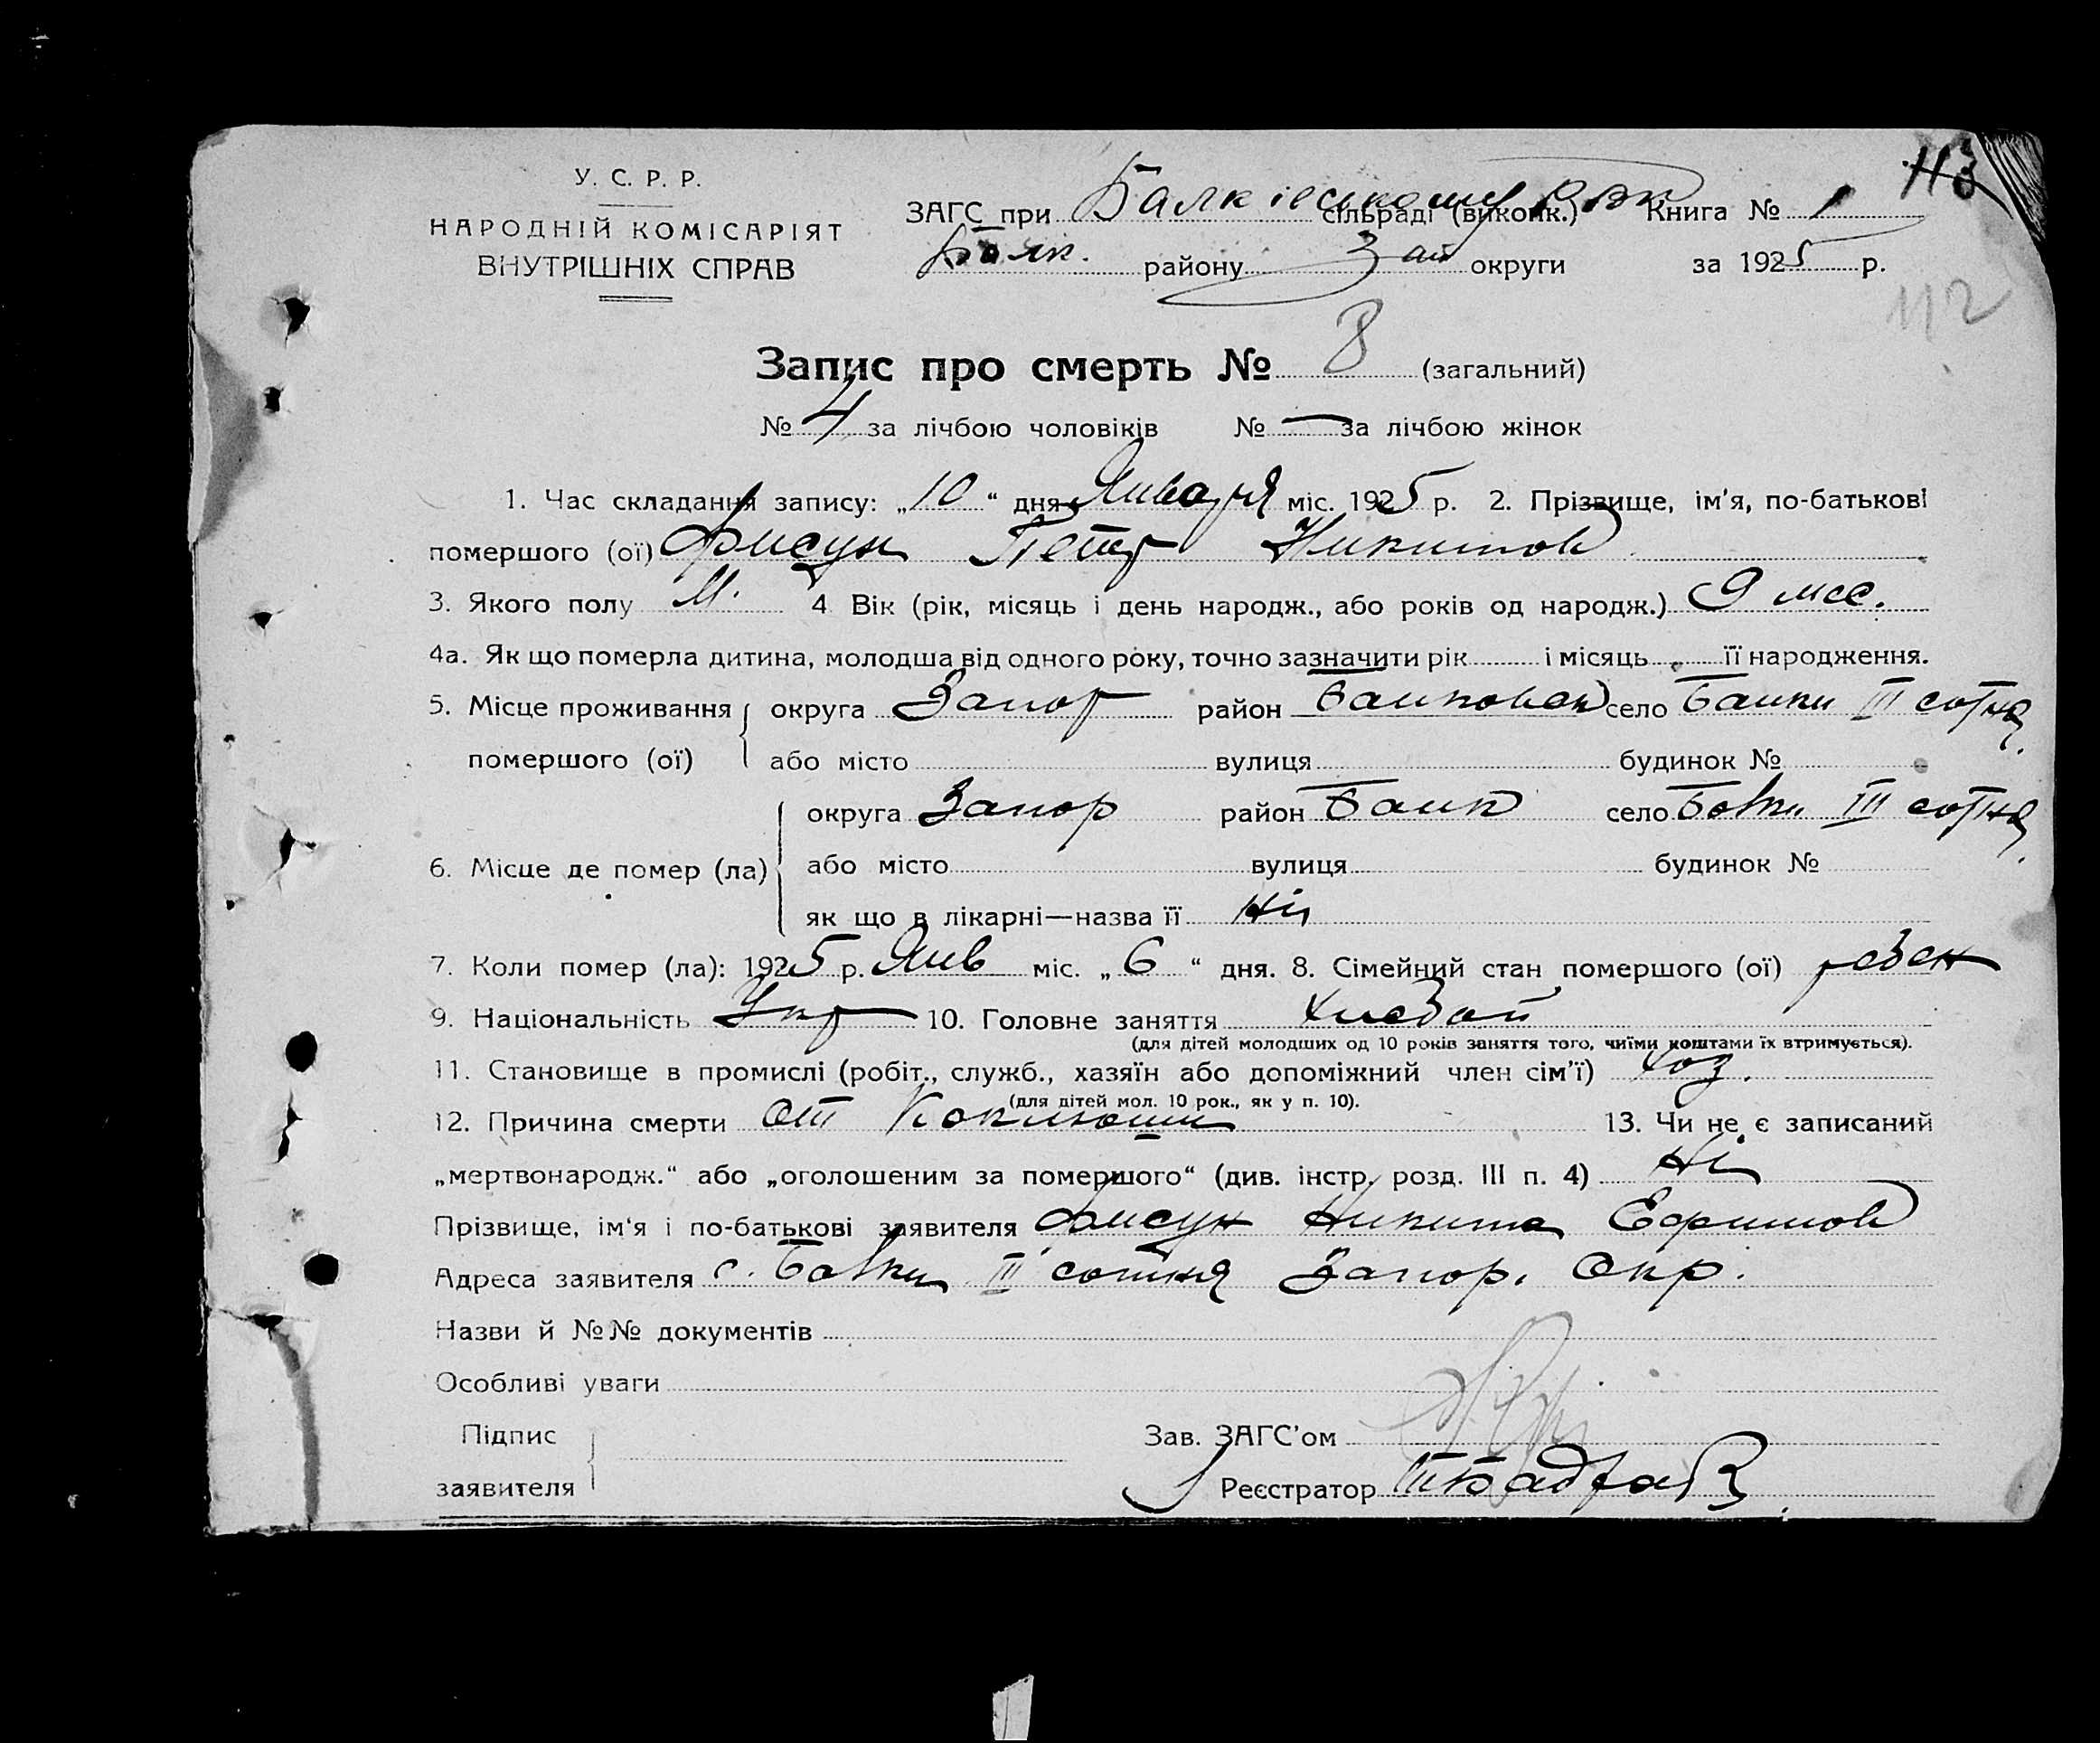 113
У. С. Р. Р.
НАРОДНІЙ КОМІСАРІЯТ
ВНУТРІШНІХ СПРАВ
ЗАГС при Балківському сільраді (виконк.) РВК Книга № 1
Балк. району Зап округи за 1925 р.
112
Запис про смерть № 8 (загальний)
№ 4 за лічбою чоловіків № — за лічбою жінок
1. Час складання запису: „10“ дня Января міс. 1925 р. 2. Прізвище, ім'я, по-батькові
помершого (ої) Фисун Петр Никитов
3. Якого полу М. 4 Вік (рік, місяць і день народж., або років од народж.) 9 мес.
4а. Як що померла дитина, молодша від одного року, точно зазначити рік і місяць її народження.
5. Місце проживання округа Запор район Балковск село Балки III сотня
помершого (ої) або місто вулиця будинок №
округа Запор район Балк село Балки III сотня
6. Місце де помер (ла) або місто вулиця будинок №
як що в лікарні—назва її Ні
7. Коли помер (ла): 1925 р. Янв міс. „6“ дня. 8. Сімейний стан помершого (ої) ребен
9. Національність Укр 10. Головне заняття Хлебоп
(для дітей молодших од 10 років заняття того, чиїми коштами їх втримується).
11. Становище в промислі (робіт., служб., хазяїн або допоміжний член сім'ї) хоз.
(для дітей мол. 10 рок., як у п. 10).
12. Причина смерти От Коклюши 13. Чи не є записаний
„мертвонародж.“ або „оголошеним за помершого“ (див. інстр. розд. III п. 4) Ні
Прізвище, ім'я і по-батькові заявителя Фисун Никита Ефимов
Адреса заявителя с. Балки III сотня Запор. Окр.
Назви й №№ документів
Особливі уваги
Підпис
заявителя
Зав. ЗАГС'ом
Реєстратор